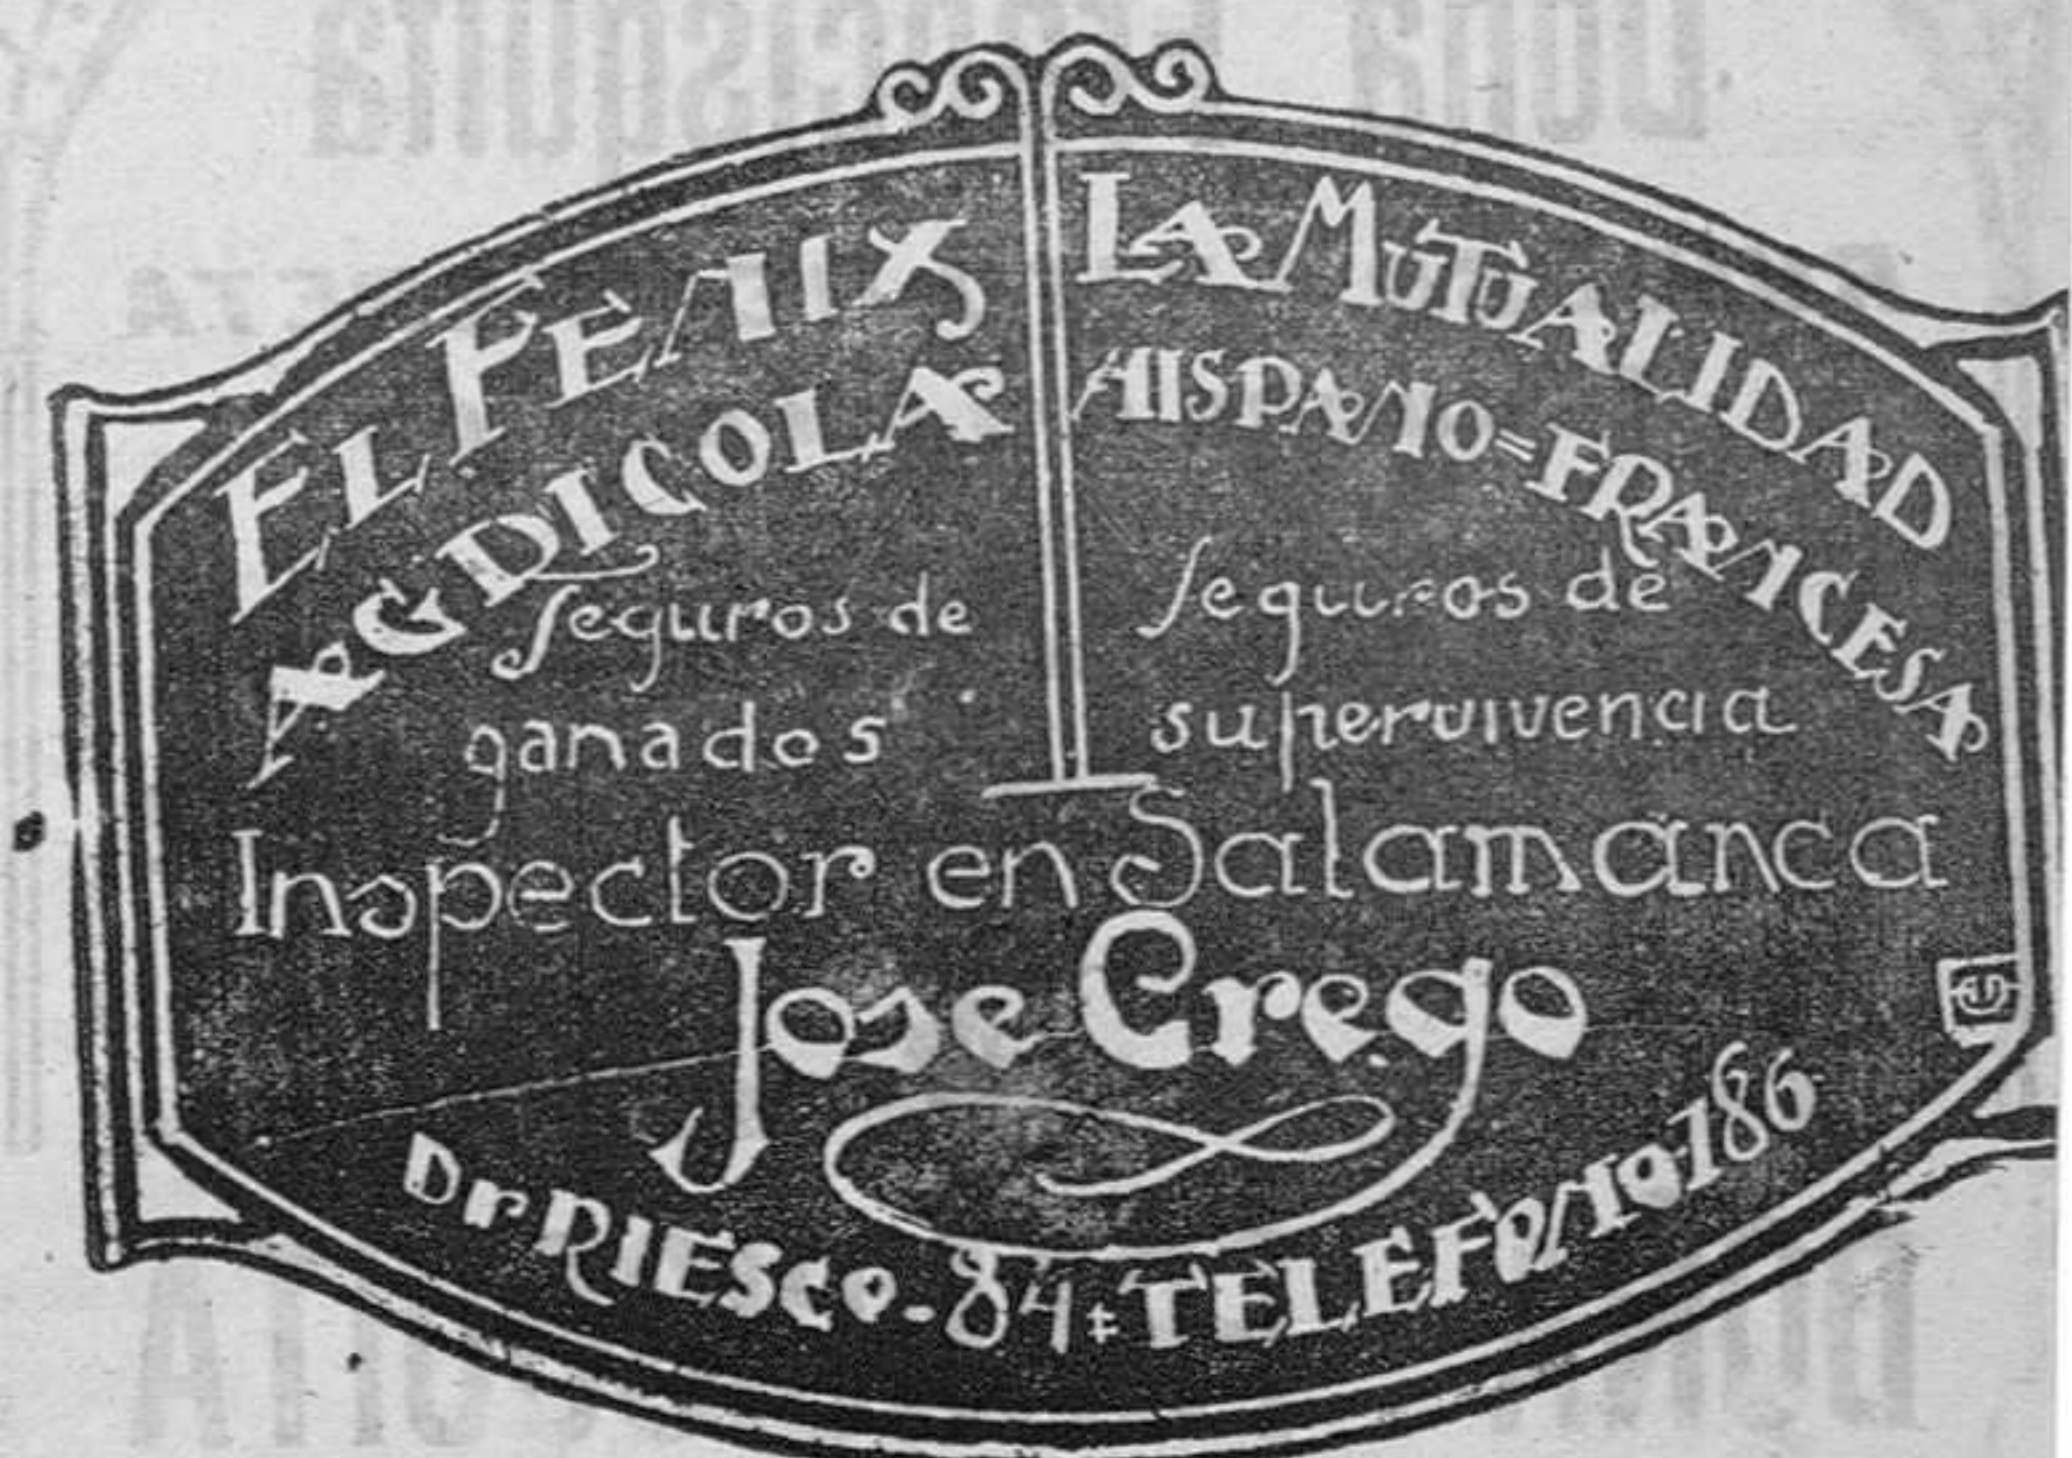 EL FENIX
AGRICOLA
Seguros de
ganados
LA MUTUALIDAD
HISPANO=FRANCESA
Seguros de
supervivencia
Inspector en Salamanca
Jose Crego
Dr RIESCO-84:TELEFONO-186